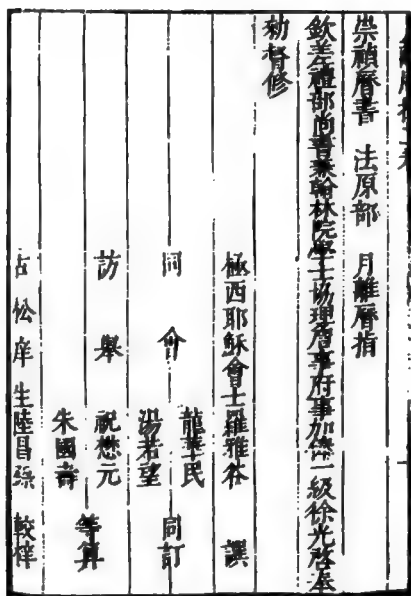 崇禎曆書　法原部　月離曆指
欽差禮部尚書兼翰林院學士協理詹事府事加俸一級徐光啓奉
勑督修
極西耶穌會士羅雅谷　譔
龍華民
同會　湯若望　同訂
訪舉　祝懋元　等算
朱國壽
松　生陸昌　較